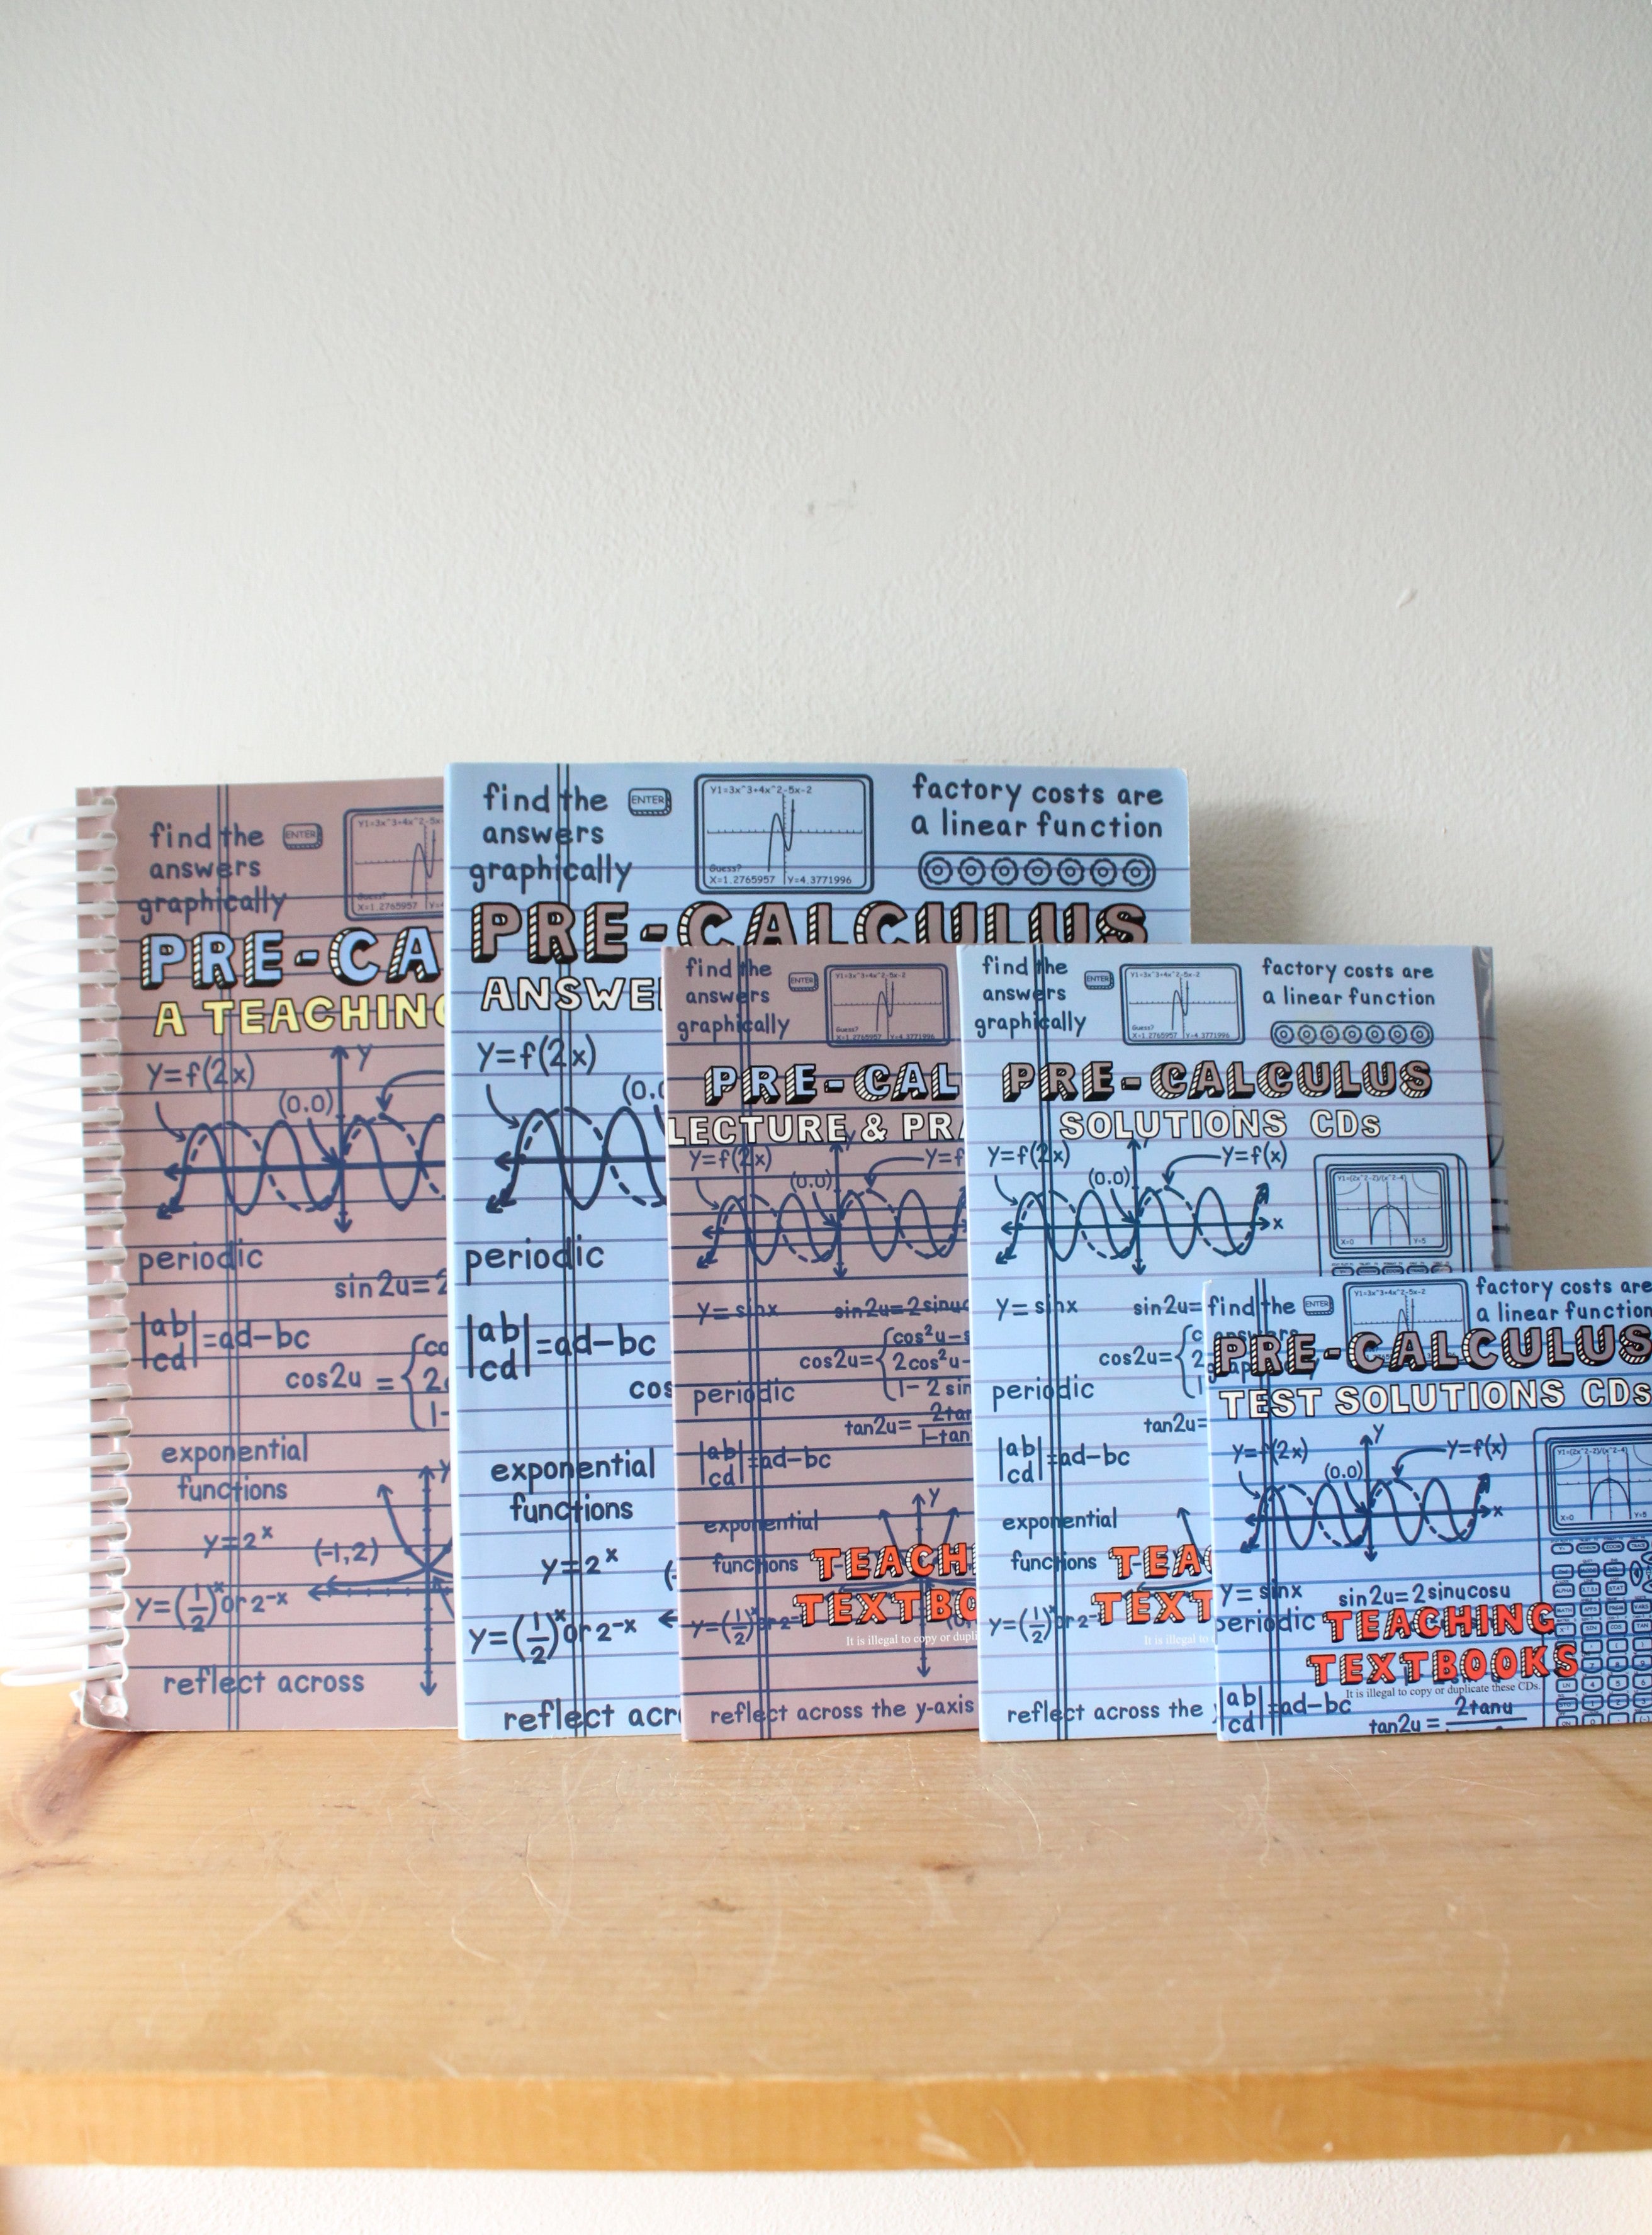 find the
answers
graphically
ENTER
Y1=3x^3+4x^2-5x
X=1.2765957
PRE-CA
A TEACHING
y=f(2x)
(0.0)
Y
periodic
sin2u=2
|ab|
|cd|=ad-bc
cos2u=
exponential
functions
y=2ˣ
(-1,2)
Y
y=(1/2)ˣ or 2⁻ˣ
reflect across
find the
answers
graphically
ENTER
Y1=3x^3+4x^2-5x-2
Guess?
X=1.2765957 Y=4.3771996
factory costs are
a linear function
PRE-CALCULUS
ANSWE
y=f(2x)
periodic
|ab|
|cd|=ad-bc
cos
exponential
functions
y=2ˣ
y=(1/2)ˣ or 2⁻ˣ
reflect acr
find the
answers
graphically
ENTER
Y1=3x^3+4x^2-5x-2
Guess?
X=1.2765957 Y=4.3771996
PRE-CAL
LECTURE & PRA
y=f(2x)
(0.0)
y=f
y=sinx
sin2u=2sinuc
cos2u={cos²u-s
2cos²u-
1-2sin
periodic
tan2u=2tan
1-tan
|ab|
|cd|=ad-bc
exponential
functions
Y
TEACH
TEXTBO
y=(1/2)ˣ or 2⁻
It is illegal to copy or dupli
reflect across the y-axis
find the
answers
graphically
ENTER
Y1=3x^3+4x^2-5x-2
Guess?
X=1.2765957 Y=4.3771996
factory costs are
a linear function
PRE-CALCULUS
SOLUTIONS CDs
y=f(2x)
(0.0)
y=f(x)
x
Y1=(2x^2-2)/(x^2-4)
X=0 Y=5
y=sinx
sin2u=
cos2u=
periodic
tan2u=
|ab|
|cd|=ad-bc
exponential
functions
TEAC
TEXT
y=(1/2)ˣ or 2⁻
It is illegal to
reflect across the
find the
ENTER
Y1=3x^3+4x^2-5x-2
factory costs are
a linear function
PRE-CALCULUS
TEST SOLUTIONS CDs
y=f(2x)
(0.0)
Y
y=f(x)
x
Y1=(2x^2-2)/(x^2-4)
X=0 Y=5
y=sinx
sin2u=2sinucosu
periodic
TEACHING
TEXTBOOKS
It is illegal to copy or duplicate these CDs.
|ab|
|cd|=ad-bc
tan2u=2tanu